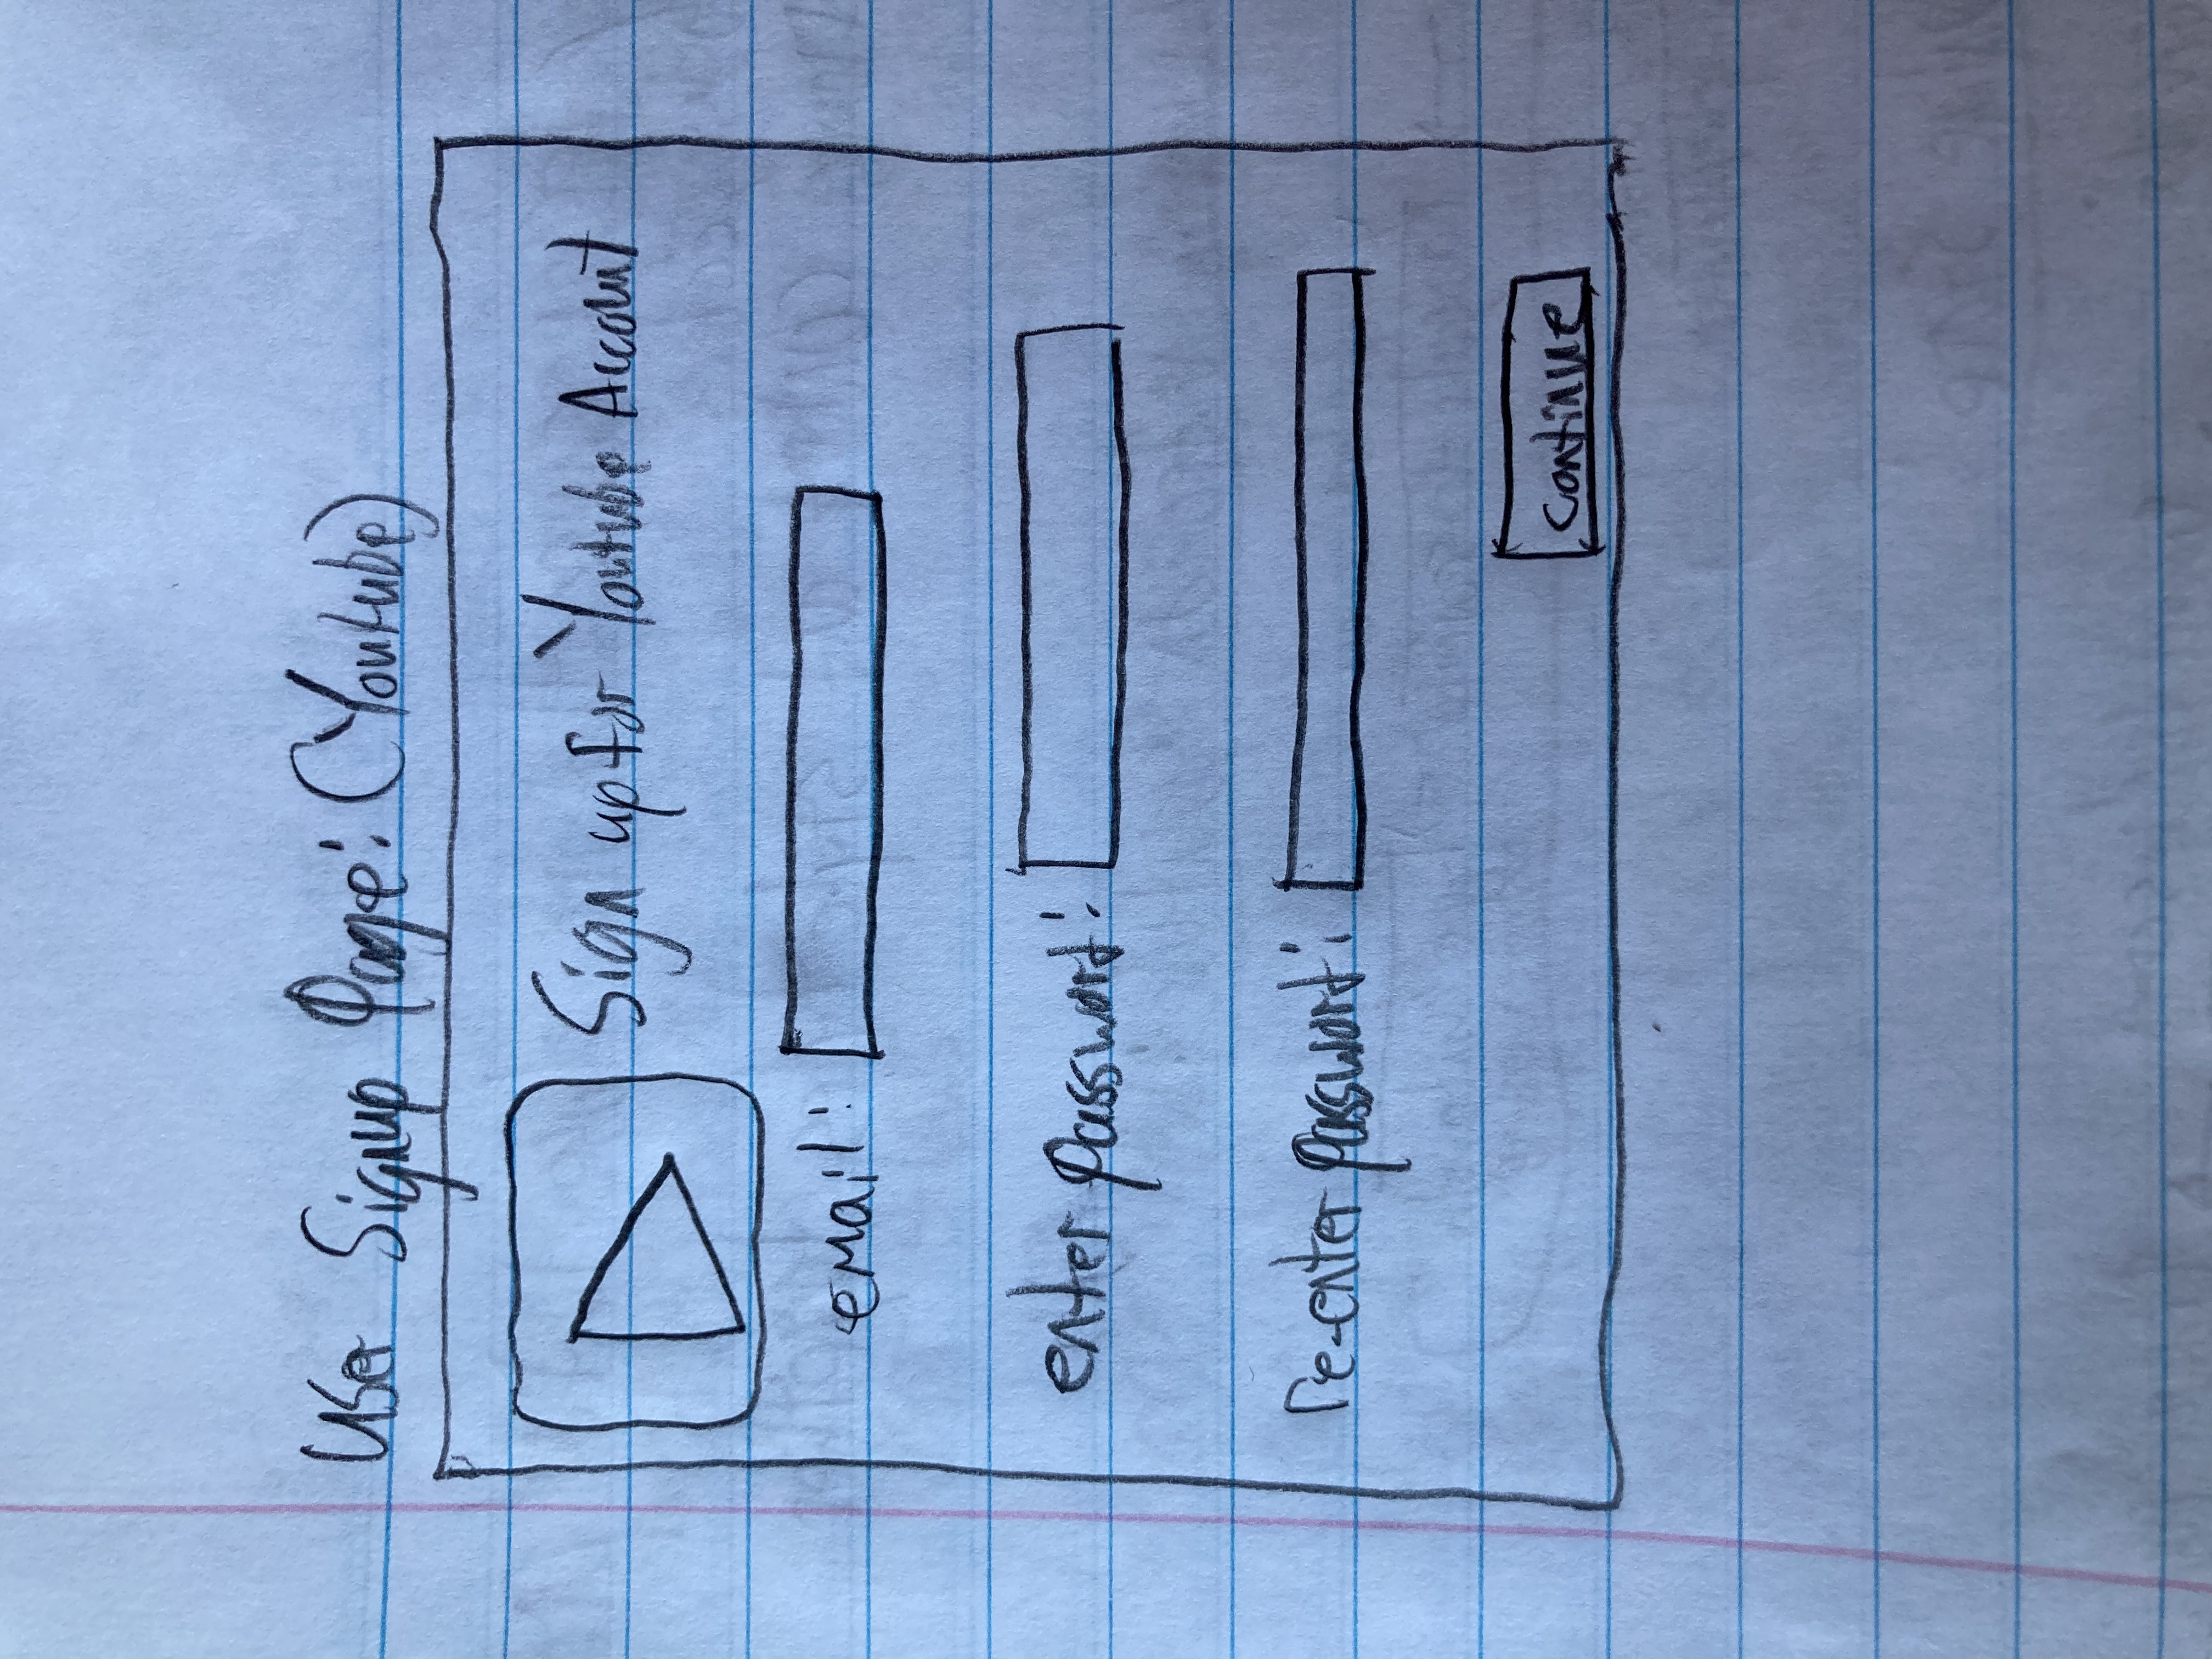 User Signup Page: (Youtube)
Sign up for Youtube Account
email:
enter password:
re-enter password:
continue